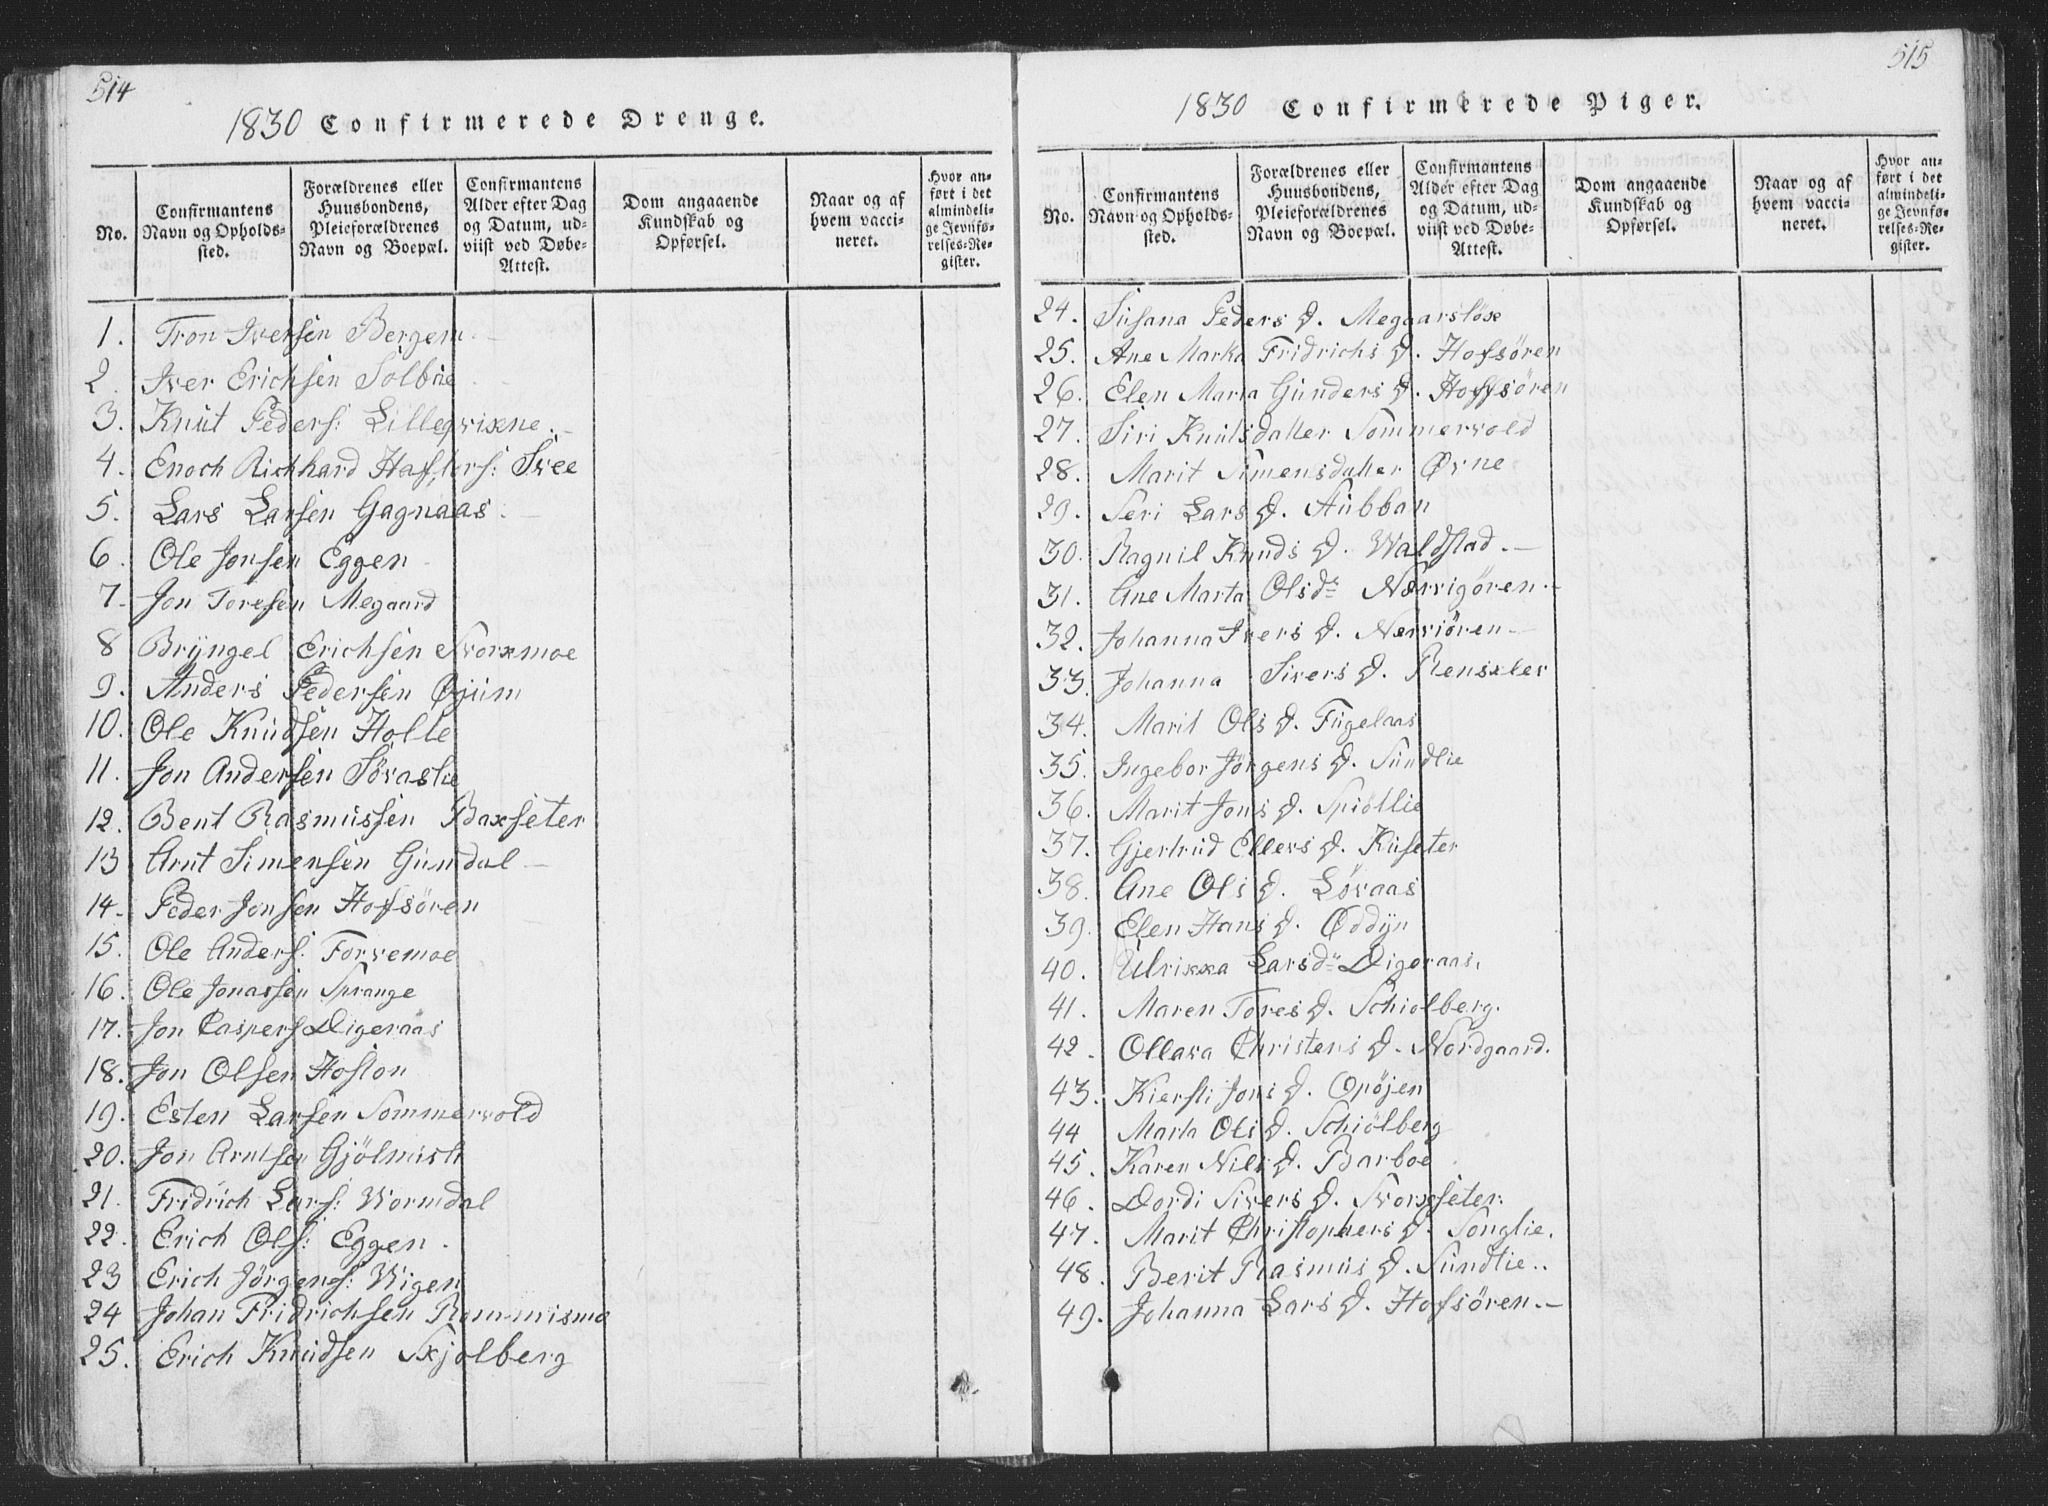 514
1830 Confirmerede Drenge.
No.
Confirmantens Navn og Opholdssted.
Forældrenes eller Huusbondens, Pleieforældrenes Navn og Boepæl.
Confirmantens Alder efter Dag og Datum, udviist ved Døbe-Attest.
Dom angaaende Kundskab og Opførsel.
Naar og af hvem vaccineret.
Hvor anført i det almindelige Jevnførelses-Register.
1. Tron Iversen Bergem.
2. Iver Erichsen Solbue
3. Knut Peders: Lilleqvixne.
4. Enoch Richhard Hafters: Svee
5. Lars Larsen Gagnaas.
6. Ole Jonsen Eggen
7. Jon Toresen Megaard
8 Bryngel Erichsen Svorxmoe
9. Anders Pedersen Øyüm
10. Ole Knudsen Holte
11. Jon Andersen Søvaslie
12. Bent Rasmussen Baxseter
13 Arnt Simensen Gumdal
14. Peder Jonsen Hofsören
15. Ole Anders: Forvemoe
16. Ole Jonassen Sprange
17. Jon Caspers Digeraas
18. Jon Olsen Hoston
19. Esten Larsen Sommervold
20. Jon Arntsen Gjölmisli
21. Fridrich Lars: Wormdal
22. Erich Ols: Eggen.
23 Erich Jörgens: Wigen
24 Johan Fridrichsen Rommismo
25. Erich Knudsen Sxjolberg
515
1830 Confirmerede Piger.
No.
Confirmantens Navn og Opholdssted.
Forældrenes eller Huusbondens, Pleieforældrenes Navn og Boepæl.
Confirmantens Alder efter Dag og Datum, udviist ved Døbe-Attest.
Dom angaaende Kundskab og Opførsel.
Naar og af hvem vaccineret.
Hvor anført i det almindelige Jevnførelses-Register.
24. Susana Peders D. Megaarsløxe
25. Ane Marka Fridrichs D. Hofsören
26. Elen Maria Gunders D. Hoffsören
27. Siri Knutsdatter Sommervold
28. Marit Simensdatter Øvne
29. Seri Lars D. Stubban
30. Ragnil Knuds D. Waldstad.
31. Ane Marta Olsdr Nærvigören.
32. Johanna Ivers D. Nerviören
33. Johanna Sivers D. Rensxlev
34. Marit Ols D. Fugelaas
35. Ingebor Jörgens D. Sundlie
36. Marit Jons D. Spiöllie
37. Gjertrud Ellevs D. Kuseter
38. Ane Ols D. Løvaas
39. Elen Hans D. Øddyn
40. Ulrixxa Larsdr Digeraas.
41. Maren Tores D. Schiolberg.
42. Ollava Christens D. Nordgaard.
43. Kiersti Jons D. Opøjen
44 Marta Ols D. Schiölberg
45. Karen Nils D. Barboe
46. Dordi Sivers D. Svorxseter.
47. Marit Christophers D. Songlie.
48. Berit Rasmus D. Sundlie..
49. Johanna Lars D. Hofsören.